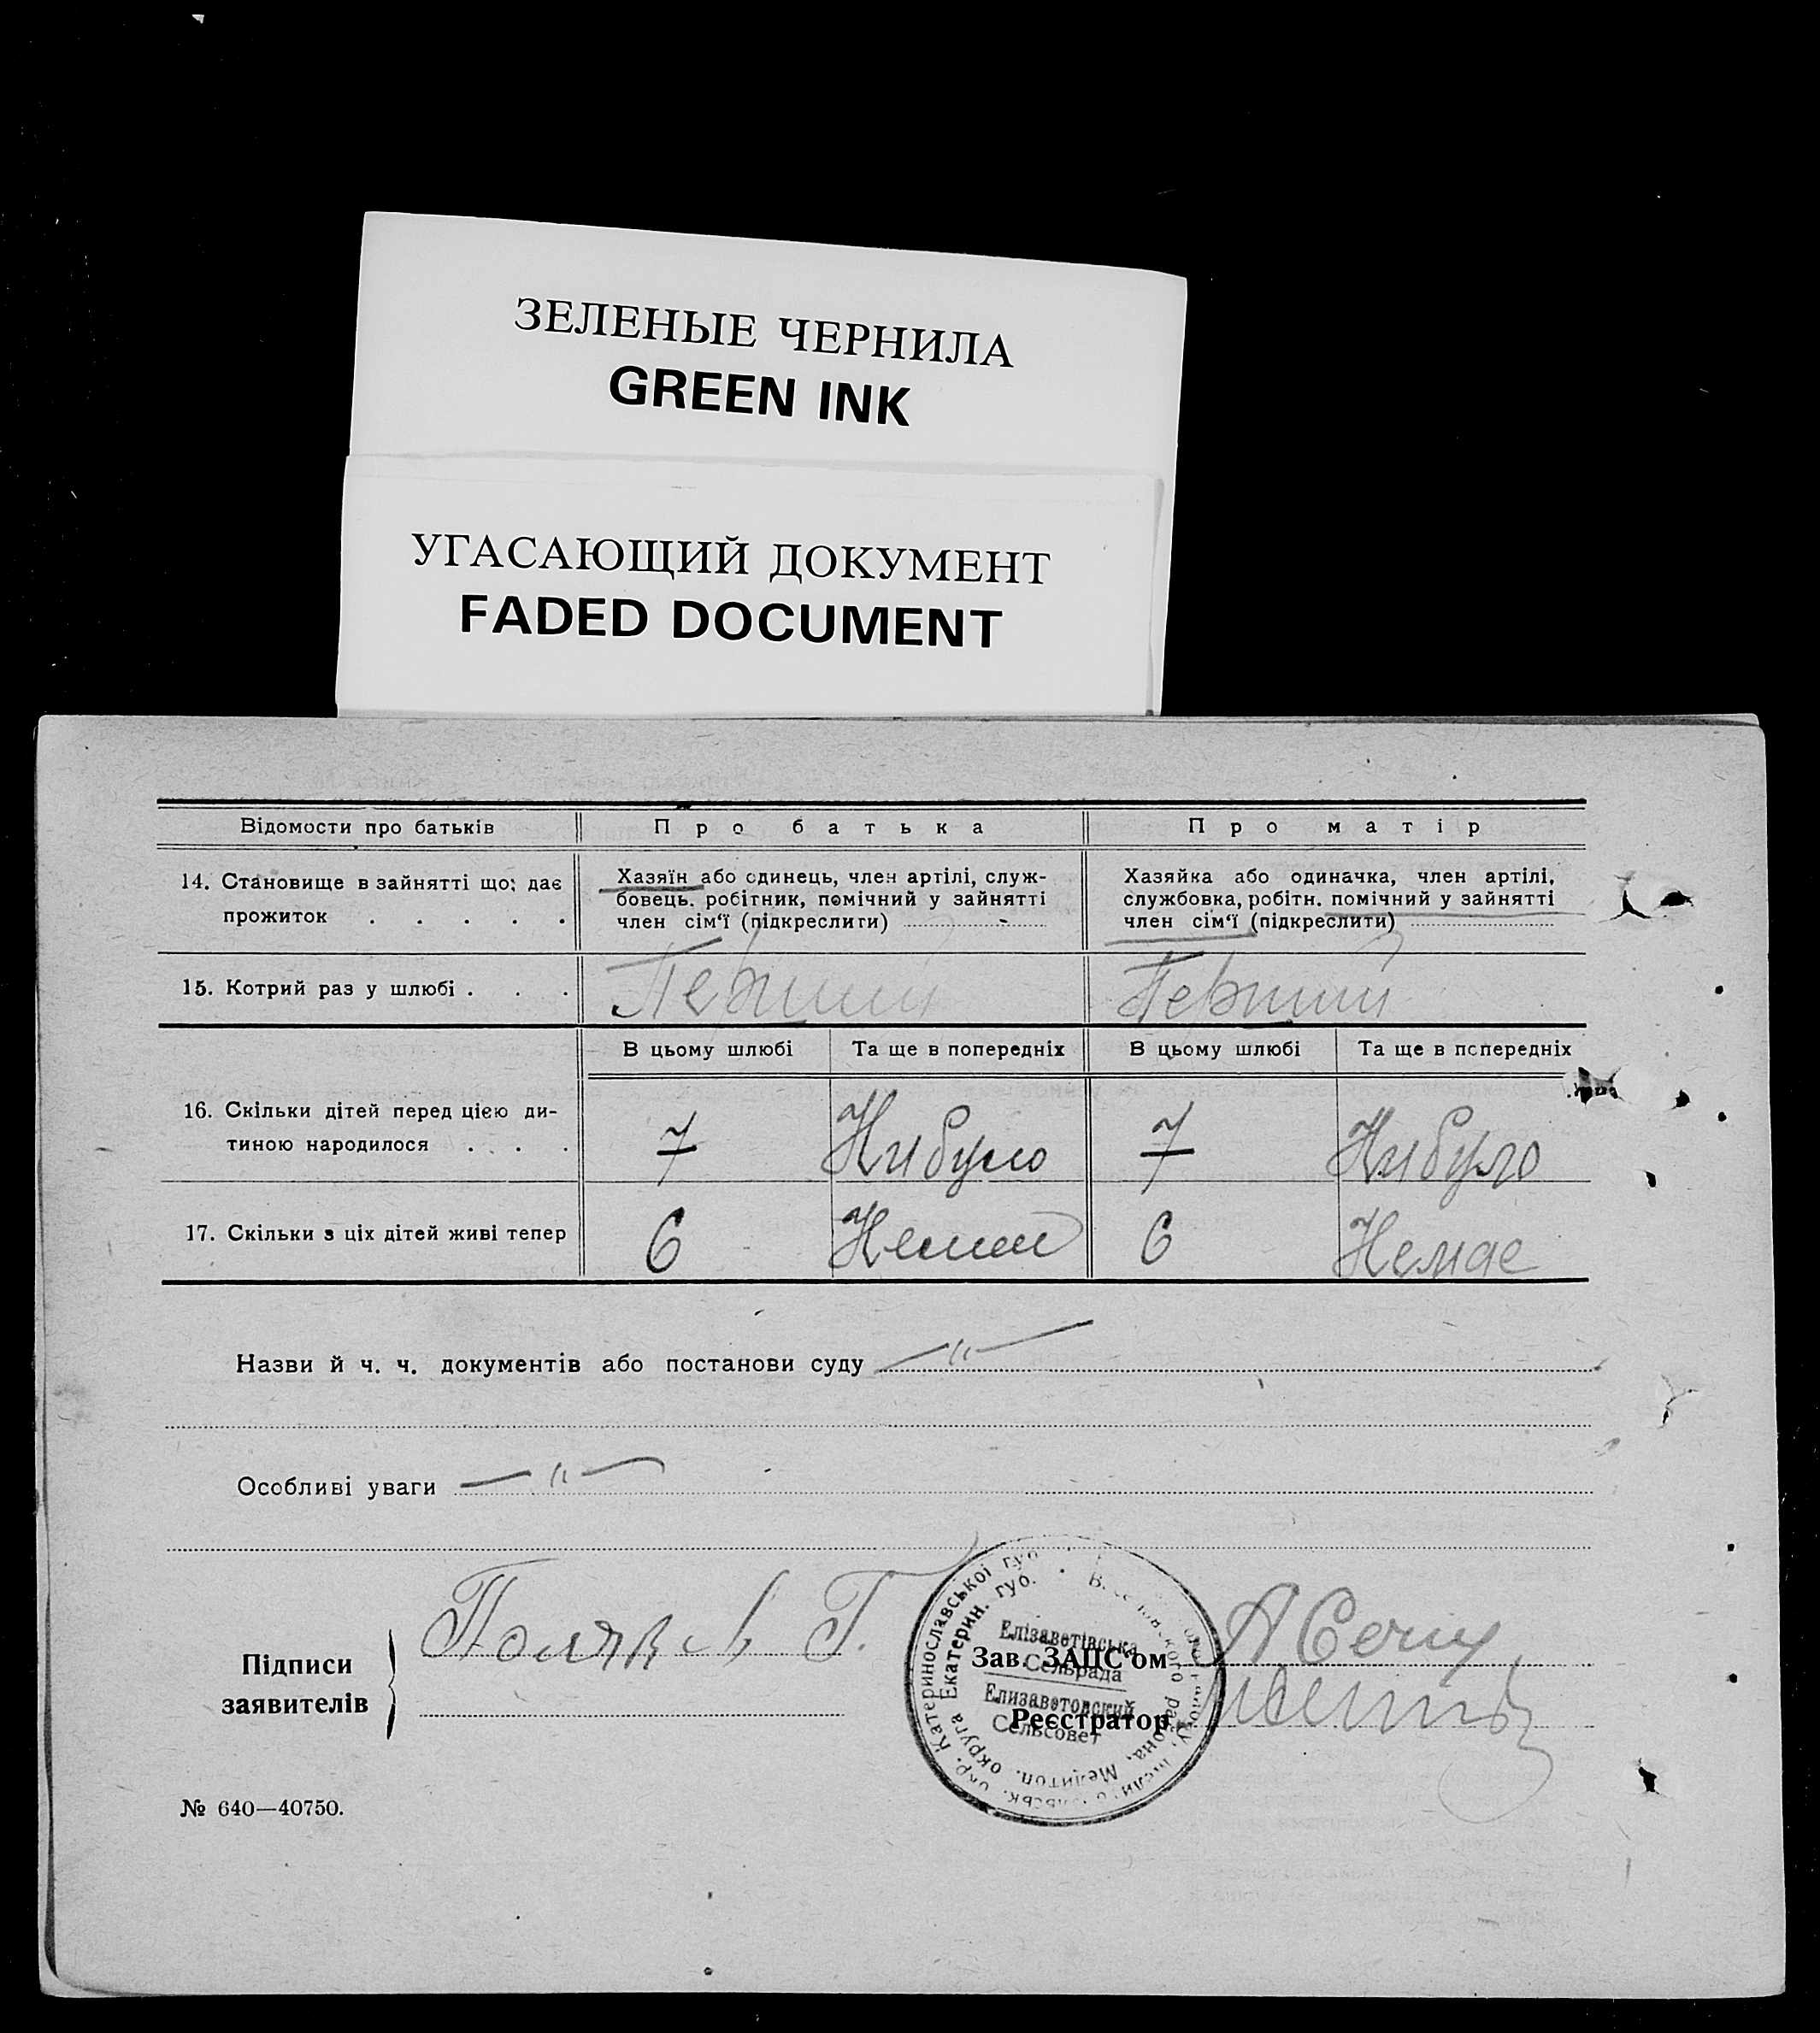 ЗЕЛЕНЫЕ ЧЕРНИЛА
GREEN INK
УГАСАЮЩИЙ ДОКУМЕНТ
FADED DOCUMENT
Відомости про батьків
Про батька
Про матір
14. Становище в зайнятті що: дає
прожиток . . . . .
Хазяїн або одинець, член артілі, служ-
бовець. робітник, помічний у зайнятті
член сім'ї (підкреслити)
Хазяйка або одиначка, член артілі,
службовка, робітн. помічний у зайнятті
член сім'ї (підкреслити)
15. Котрий раз у шлюбі . . .
Перший
Перший
В цьому шлюбі
Та ще в попередніх
В цьому шлюбі
Та ще в попередніх
16. Скільки дітей перед цією ди-
тиною народилося . . .
7
Нибуло
7
Нибуло
17. Скільки з ціх дітей живі тепер
6
Немає
6
Немає
Назви й ч. ч. документів або постанови суду — " —
Особливі уваги — " —
Підписи
заявителів
Поляков Г.
Зав. ЗАПС'ом
Реєстратор
Елізаветівська
Сельрада
Елизаветовский
Сельсовет
окр. Катеринославської губ.
округа Екатерин. губ.
района, Мелитоп.
№ 640—40750.